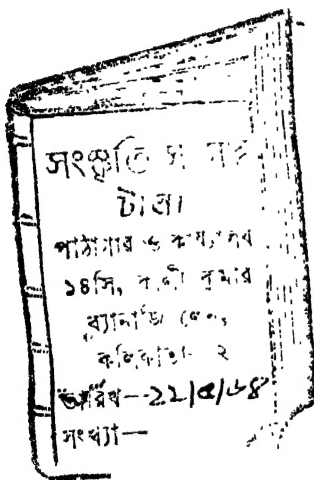 সংস্কৃতি
টালা
পাঠাগার ও কার্য্যালয়
১৪সি, কালী কুমার
ব্যানার্জি লেন,
কলিকাতা- ২
তারিখ—22/৫/৬৪
সংখ্যা—